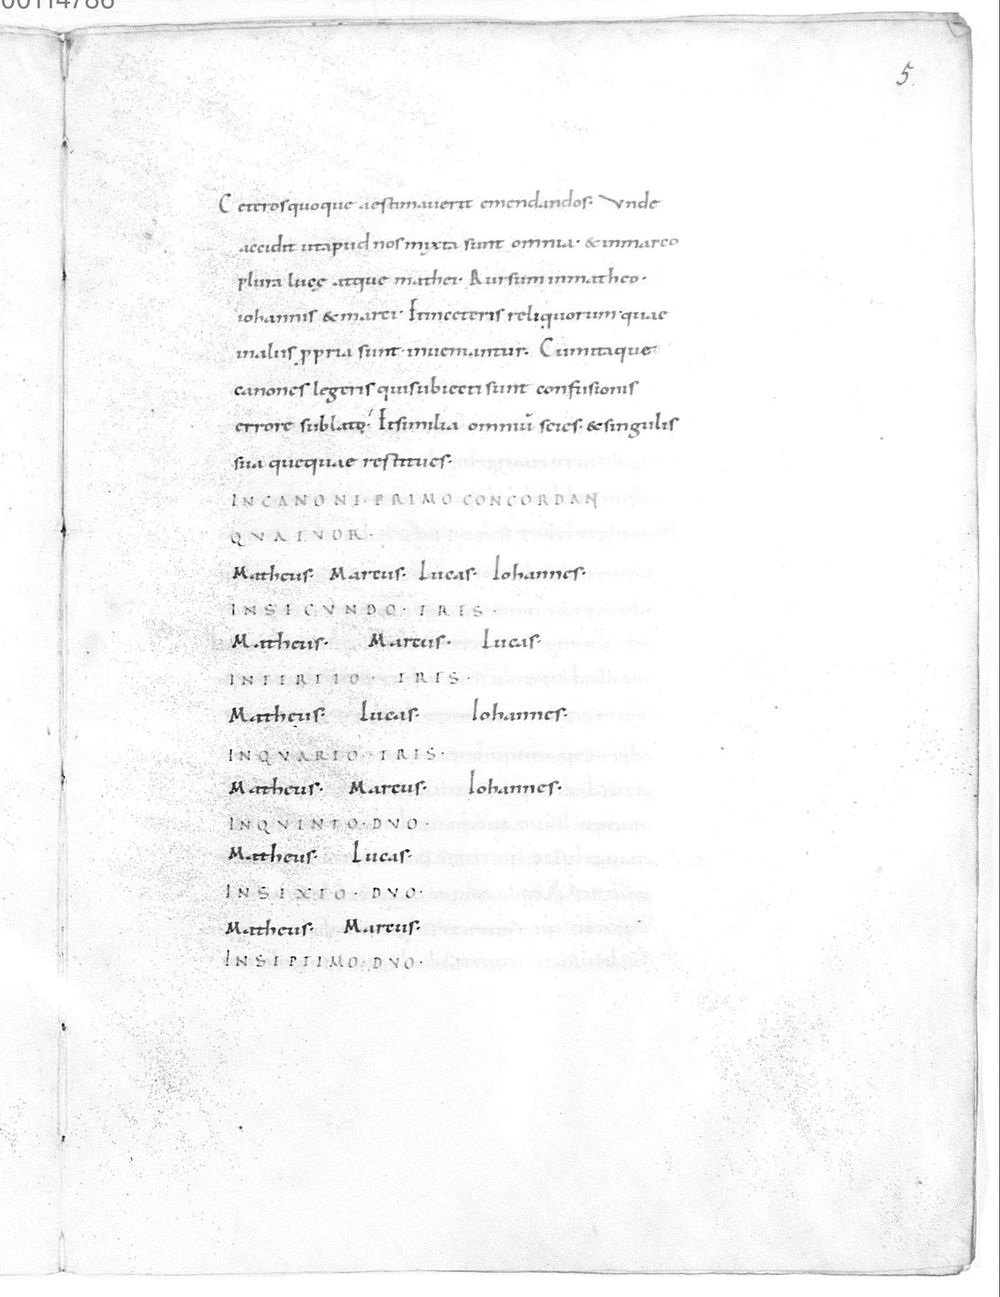 00114786
5.
Ceterosquoque aestimauerit emendandos. Vnde
accidit utapud nos myxta sunt omnia. &inmarco
plura lucę atque mathei. Rursum inmatheo.
iohannis & marci. Etinceteris reliquorum quae
inaliis ppria sunt inueniantur. Cumitaque
canones legeris quisubiecti sunt confusionis
errore sublato. Etsimilia omniū scies. &singulis
sua quequae restitues.
INCANONI PRIMO CONCORDAN
QVATVOR.
Matheus. Marcus. Lucas. Iohannes.
INSICVNDO. TRIS.
Matheus. Marcus. Lucas.
INTIRTIO. TRIS.
Mattheus. Lucas. Iohannes.
INQVARTO. TRIS.
Mattheus. Marcus. Iohannes.
INQVINTO. DVO
Mattheus. Lucas.
INSIXTO. DVO.
Mattheus. Marcus.
INSIPTIMO. DVO.